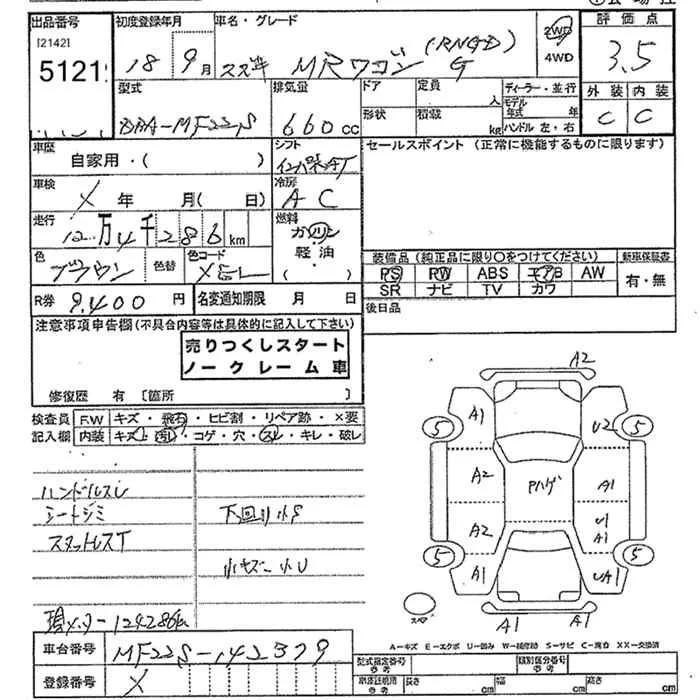 出品番号 初度登録年月 車名・グレード 2WD 4WD 評価点
[2142]
5121
18 9月 スズキ MRワゴン (RNGD) G 3.5
型式 排気量 ドア 定員 人 ディーラー・並行 外装 内装
DBA-MF22S 660cc 形状 積載 kg モデル年式 年 ハンドル 左・右 C C
車歴 自家用・( ) シフト セールスポイント (正常に機能するものに限ります)
車検 X 年 月(日) 冷房 AC
走行 12万4千286km 燃料 ガソリン 軽油 ( )
色 ブラウン 色替 色コード 装備品 (純正品に限り○をつけてください) 新車保証書
PS PW ABS エアB AW 有・無
SR ナビ TV カワ
R券 9,400円 名変通知期限 月 日 後日品
注意事項申告欄(不具合内容等は具体的に記入して下さい)
売りつくしスタート
ノークレーム車
修復歴 有 [箇所 ]
検査員 F.W キズ・飛石・ヒビ割・リペア跡・×要
記入欄 内装 キズ・汚レ・コゲ・穴・スレ・キレ・破レ
ハンドルスレ
シートシミ 下回り小サ
スタットレスT
小キズ 小U
現メーター124286km
車台番号 MF22S-142379
登録番号 X
A2
A1 U2
5 5
A2 Pハゲ A1
A2 U1 A1
5 5
A1 UA1
スペア A1 A1
A-キズ E-エクボ U-凹み W-補修跡 S-サビ C-腐食 XX-交換済
型式指定番号 参考 類別区分番号
車庫証明用 参考 長さ cm 幅 cm 高さ cm